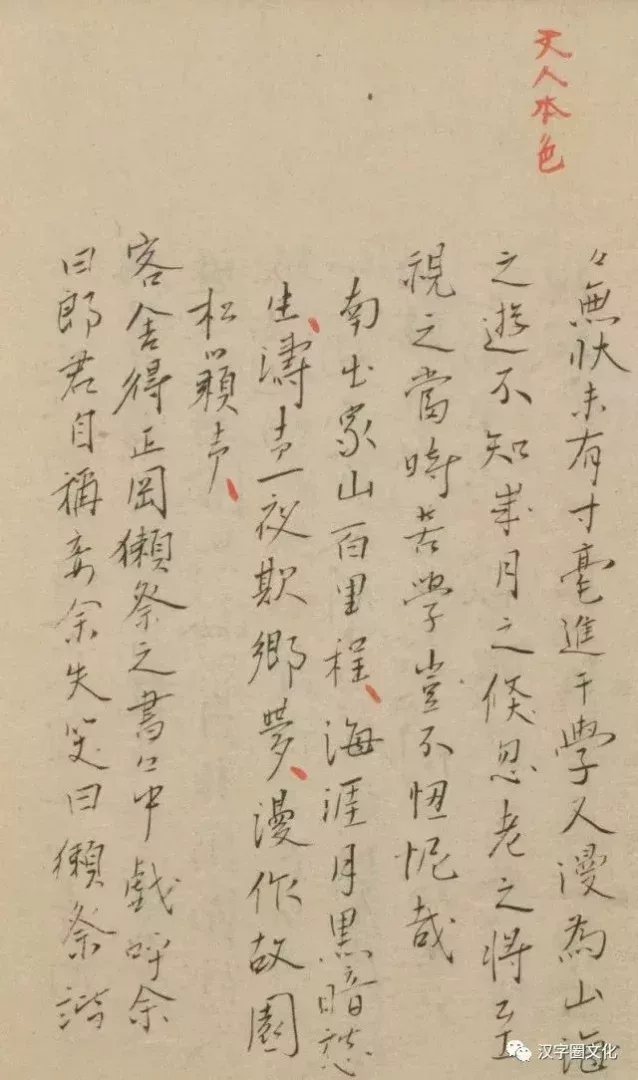 文人本色
々無状未有寸毫進于學又漫為山海
之遊不知歲月之倏忽老之将至
視之當時苦学豈不忸怩哉
南出家山百里程、海涯月黒暗愁
生、濤声一夜欺郷夢、漫作故園
松籟声、
客舎得正岡獺祭之書々中戯呼余
曰郎君自稱妾余失笑曰獺祭諧
汉字圈文化